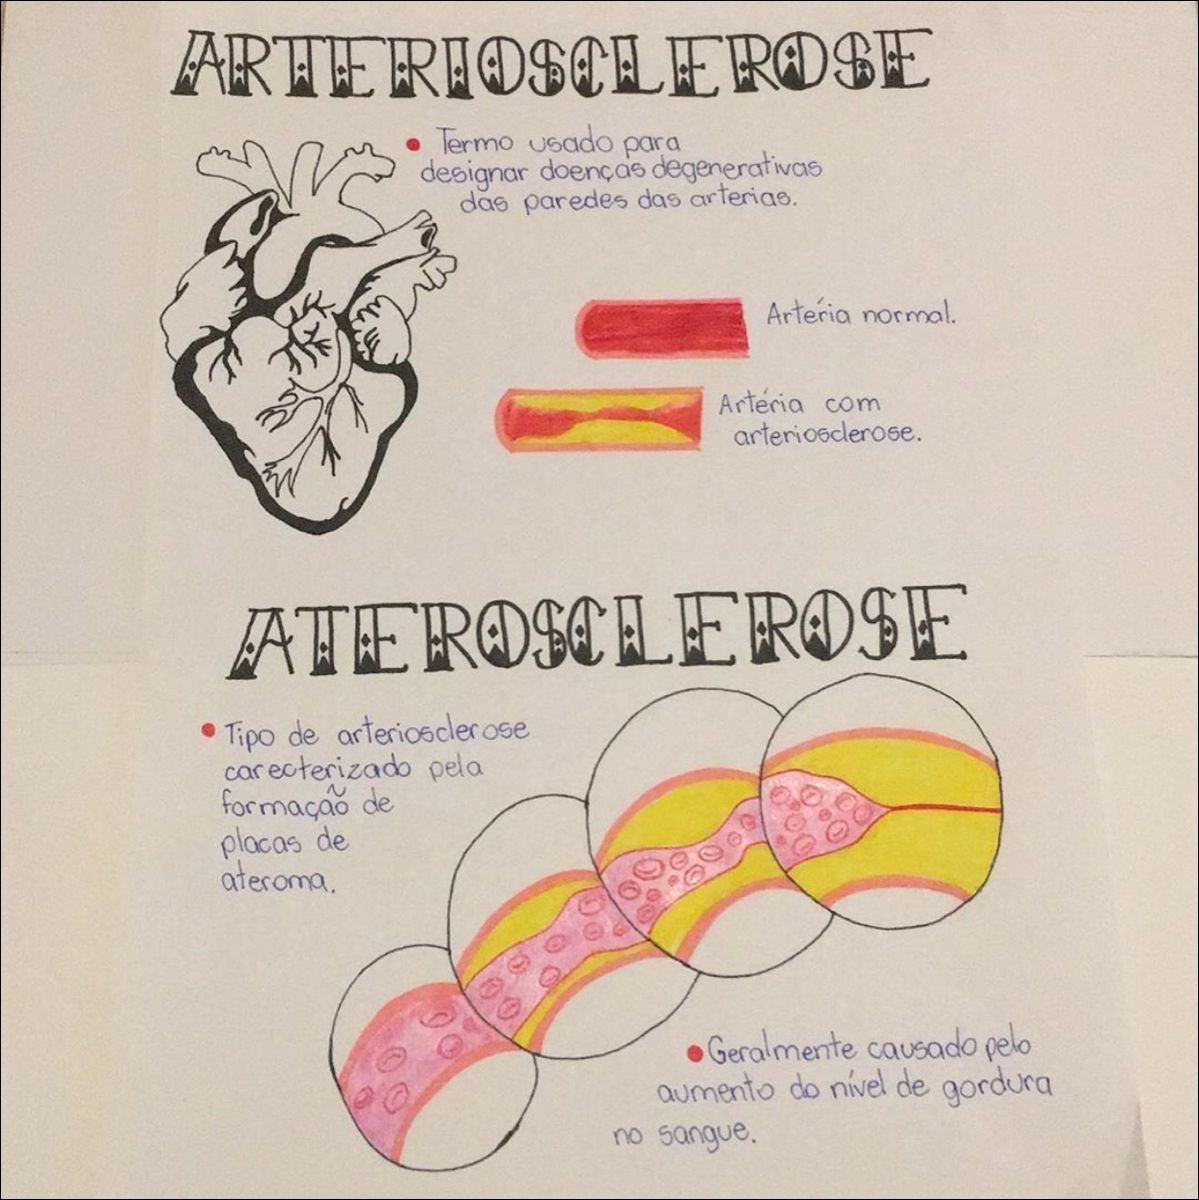 ARTERIOSCLEROSE
• Termo usado para
designar doenças degenerativas
das paredes das arterias.
Artéria normal.
Artéria com
arteriosclerose.
ATEROSCLEROSE
• Tipo de arteriosclerose
carecterizado pela
formaçaõ de
placas de
ateroma.
• Geralmente causado pelo
aumento do nível de gordura
no sangue.